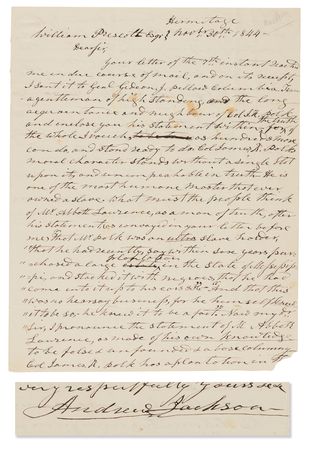 Hermitage
William Prescott Esqr } Novbr 30th 1844
Dear Sir,
Your letter of the 7th instant reached
me in due course of mail, and on its receipt
I sent it to Genl Gideon J. pillow Columbia Tenn
a gentleman of high standing, and the long
acquaintance and neighbour of Col J. K. polk
and inclose you his statement for the truth of
the whole I vouch for as hundreds more
can do and stand ready to do. Col James K. Polk's
moral character stands without a single blot
upon it, and unimpeachable in truth. He is
one of the most humane masters that ever
owned a slave. what must the people think
of Mr. Abbot Lawrence, as a man of truth, after
his statement as conveyed in your letter before
me, that Mr polk was an ultra slave holder,
that he had recently, say within some years pur-
plantation
chased a large in the state of Mississip-
pi, and stocked it with negroes, that he had
come into it up to his And that this
was no hearsay business, for he himself knew
it to be so; he knew it to be a fact. Now my dr
Sir, I pronounce the statement of M. Abbott
Lawrence, as made of his own knowledge
to be false, an unfounded & base calumny
Col James K. polk has a plantation in
very respectfully yours &c
Andrew Jackson